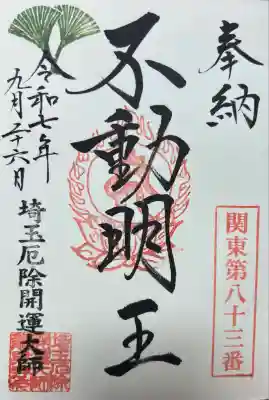 奉納
関東第八十三番
不動明王
令和七年
九月二十六日
埼玉厄除開運大師